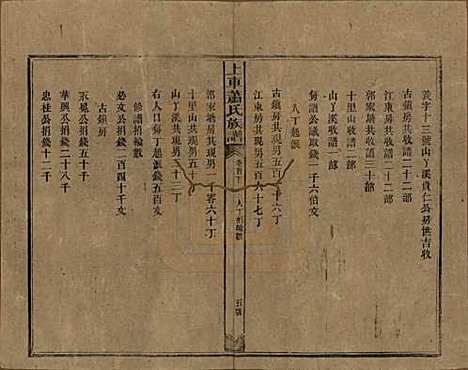 義字十三號山丫溪貴仁公房世吉收
古鎮房共收譜二十二部
江東房共收譜二十二部
郭家塘共收譜三十二部
十里山收譜二部
山丫溪收譜二部
修譜公議取錢一千六伯文
人丁起派
古鎮房共現男五百
十六丁
江東房共現男五百六十七丁
上車蕭氏族譜
卷首下
人丁
五
郭家塘房共現男
千零六十丁
十里山共現男五十
山丫溪共現男五十三丁
右人口每丁起派錢
文
必文公捐錢一百四十千文
修譜捐輸數
古鎮房
東晃公捐錢五十千
華興公捐錢二十八千
忠桂公捐錢十二千